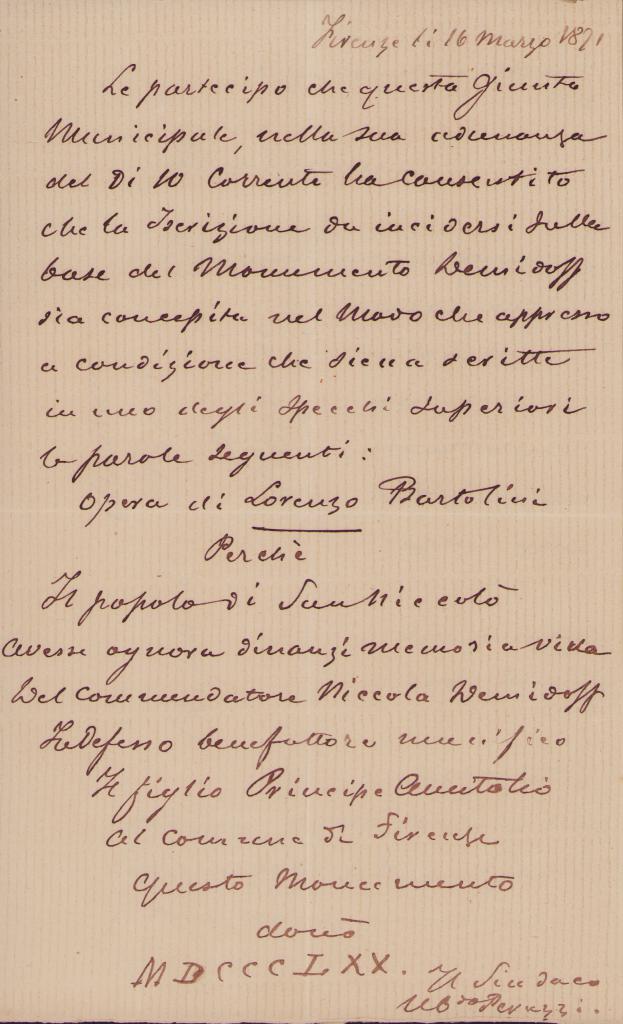 Firenze li 16 Marzo 1871
Le partecipo che questa Giunta
Municipale, nella sua adunanza
del Di 10 Corrente ha Consentito
che la Iscrizione da incidersi sulla
base del Monumento Demidoff
sia concepita nel Modo che appresso
a condizione che siena scritte
in uno degli specchi superiori
le parole seguenti:
Opera di Lorenzo Bartolini
Perchè
Il popolo di San Niccolò
avesse ognora dinanzi memoria viva
Del Commendatore Niccola Demidoff
Indefesso benefattore munifico
Il figlio Principe Anatolio
al Comune di Firenze
Questo Monumento
donò
MDCCCLXX.
Il Sindaco
UB.do Peruzzi.